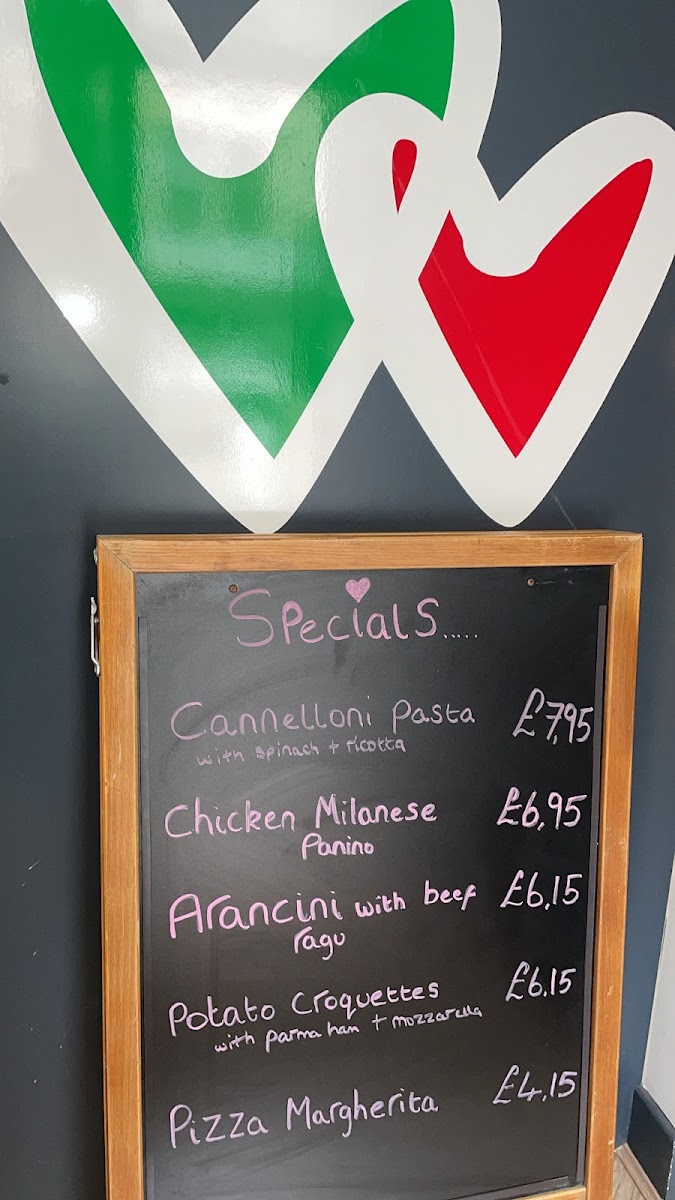 Specials.....
Cannelloni Pasta £7,95
with spinach + ricotta
Chicken Milanese £6,95
Panino
Arancini with beef £6,15
ragu
Potato Croquettes £6,15
with parma ham + mozzarella
Pizza Margherita £4,15